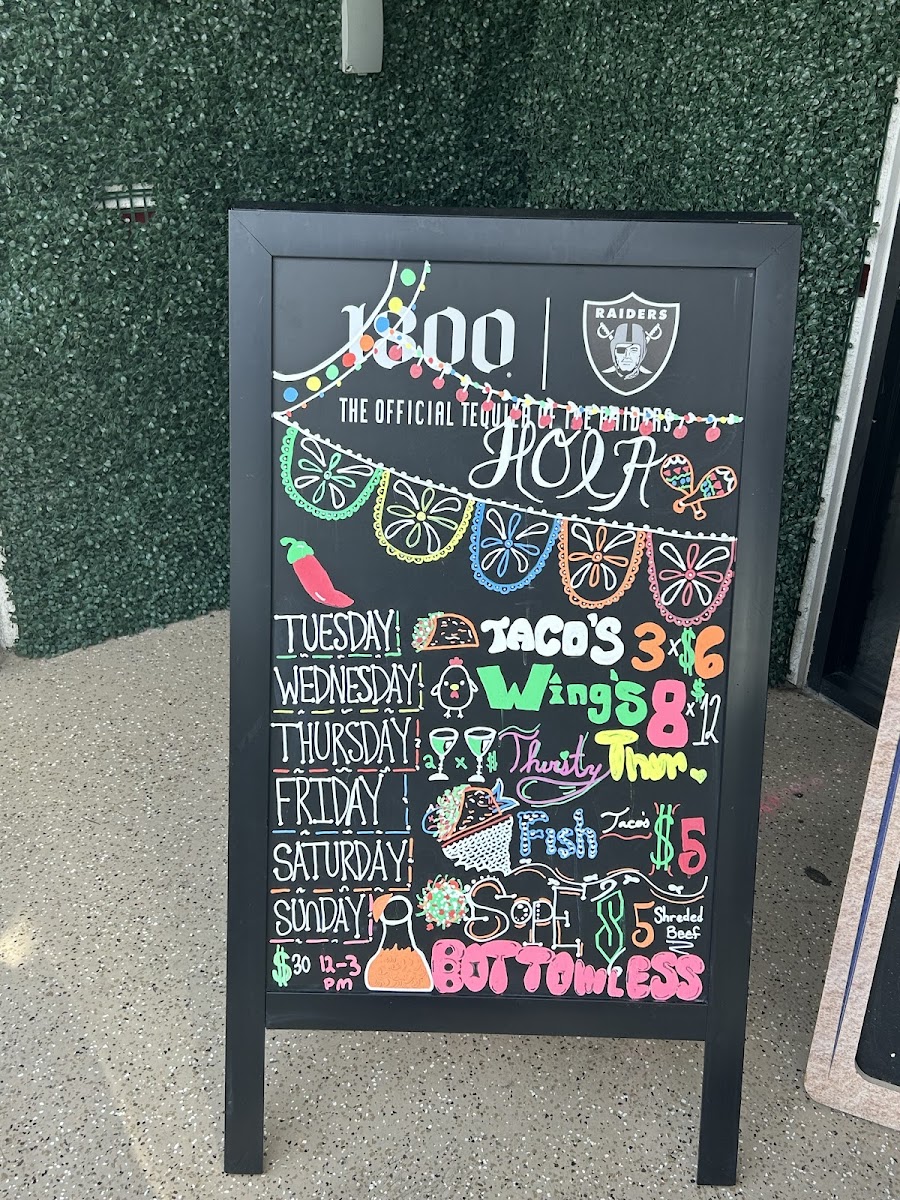 1800
RAIDERS
THE OFFICIAL TEQUILA OF THE RAIDERS
HOLA
TUESDAY TACO'S 3 x $6
WEDNESDAY Wing's 8 x $12
THURSDAY 2 x 1 Thirsty Thur.
FRIDAY Fish Taco's $5
SATURDAY
SUNDAY SOPE $5 Shreded Beef
$30 12-3 PM BOTTOMLESS